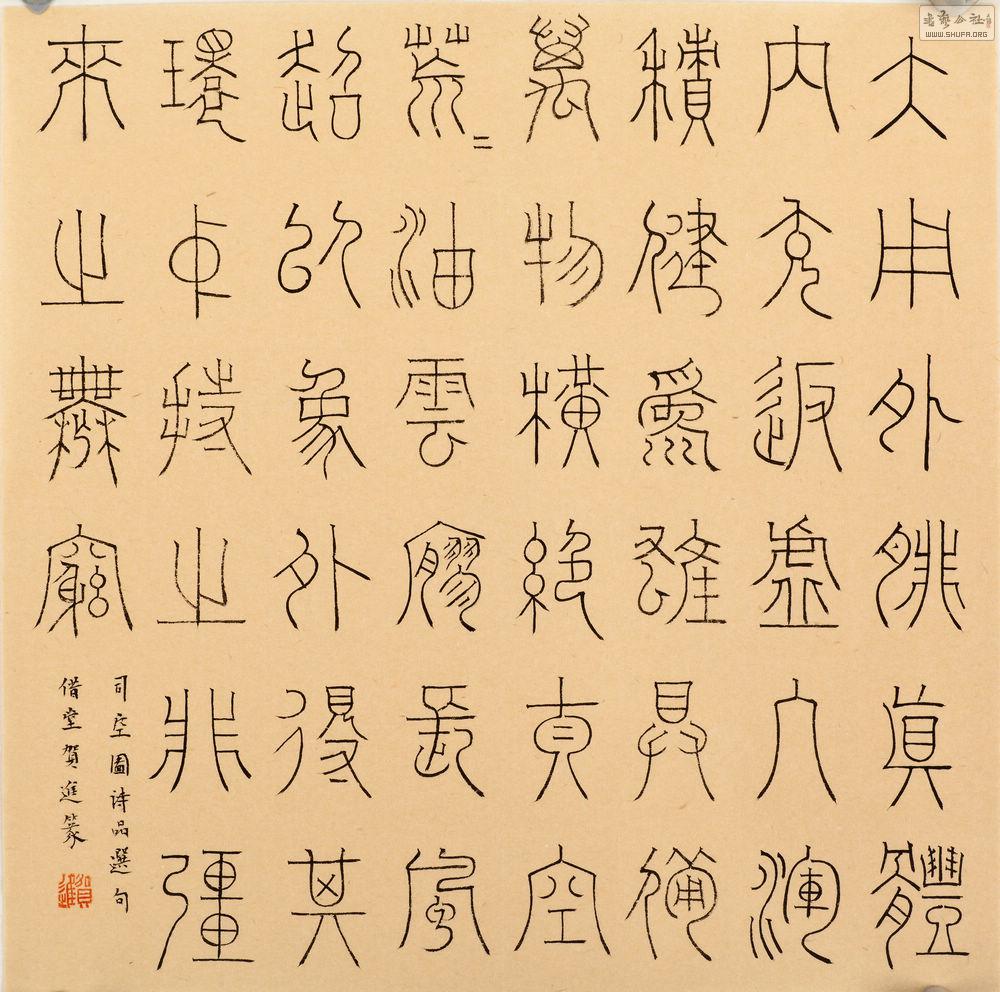 大用外腓真體
内充返虛入渾
積健為雄具備
萬物橫絕太空
荒二油雲寥長風
超以象外得其
環中持之非彊
來之無窮
司空圖詩品選句
借堂賀進篆
賀進
書藝公社
WWW.SHUFA.ORG